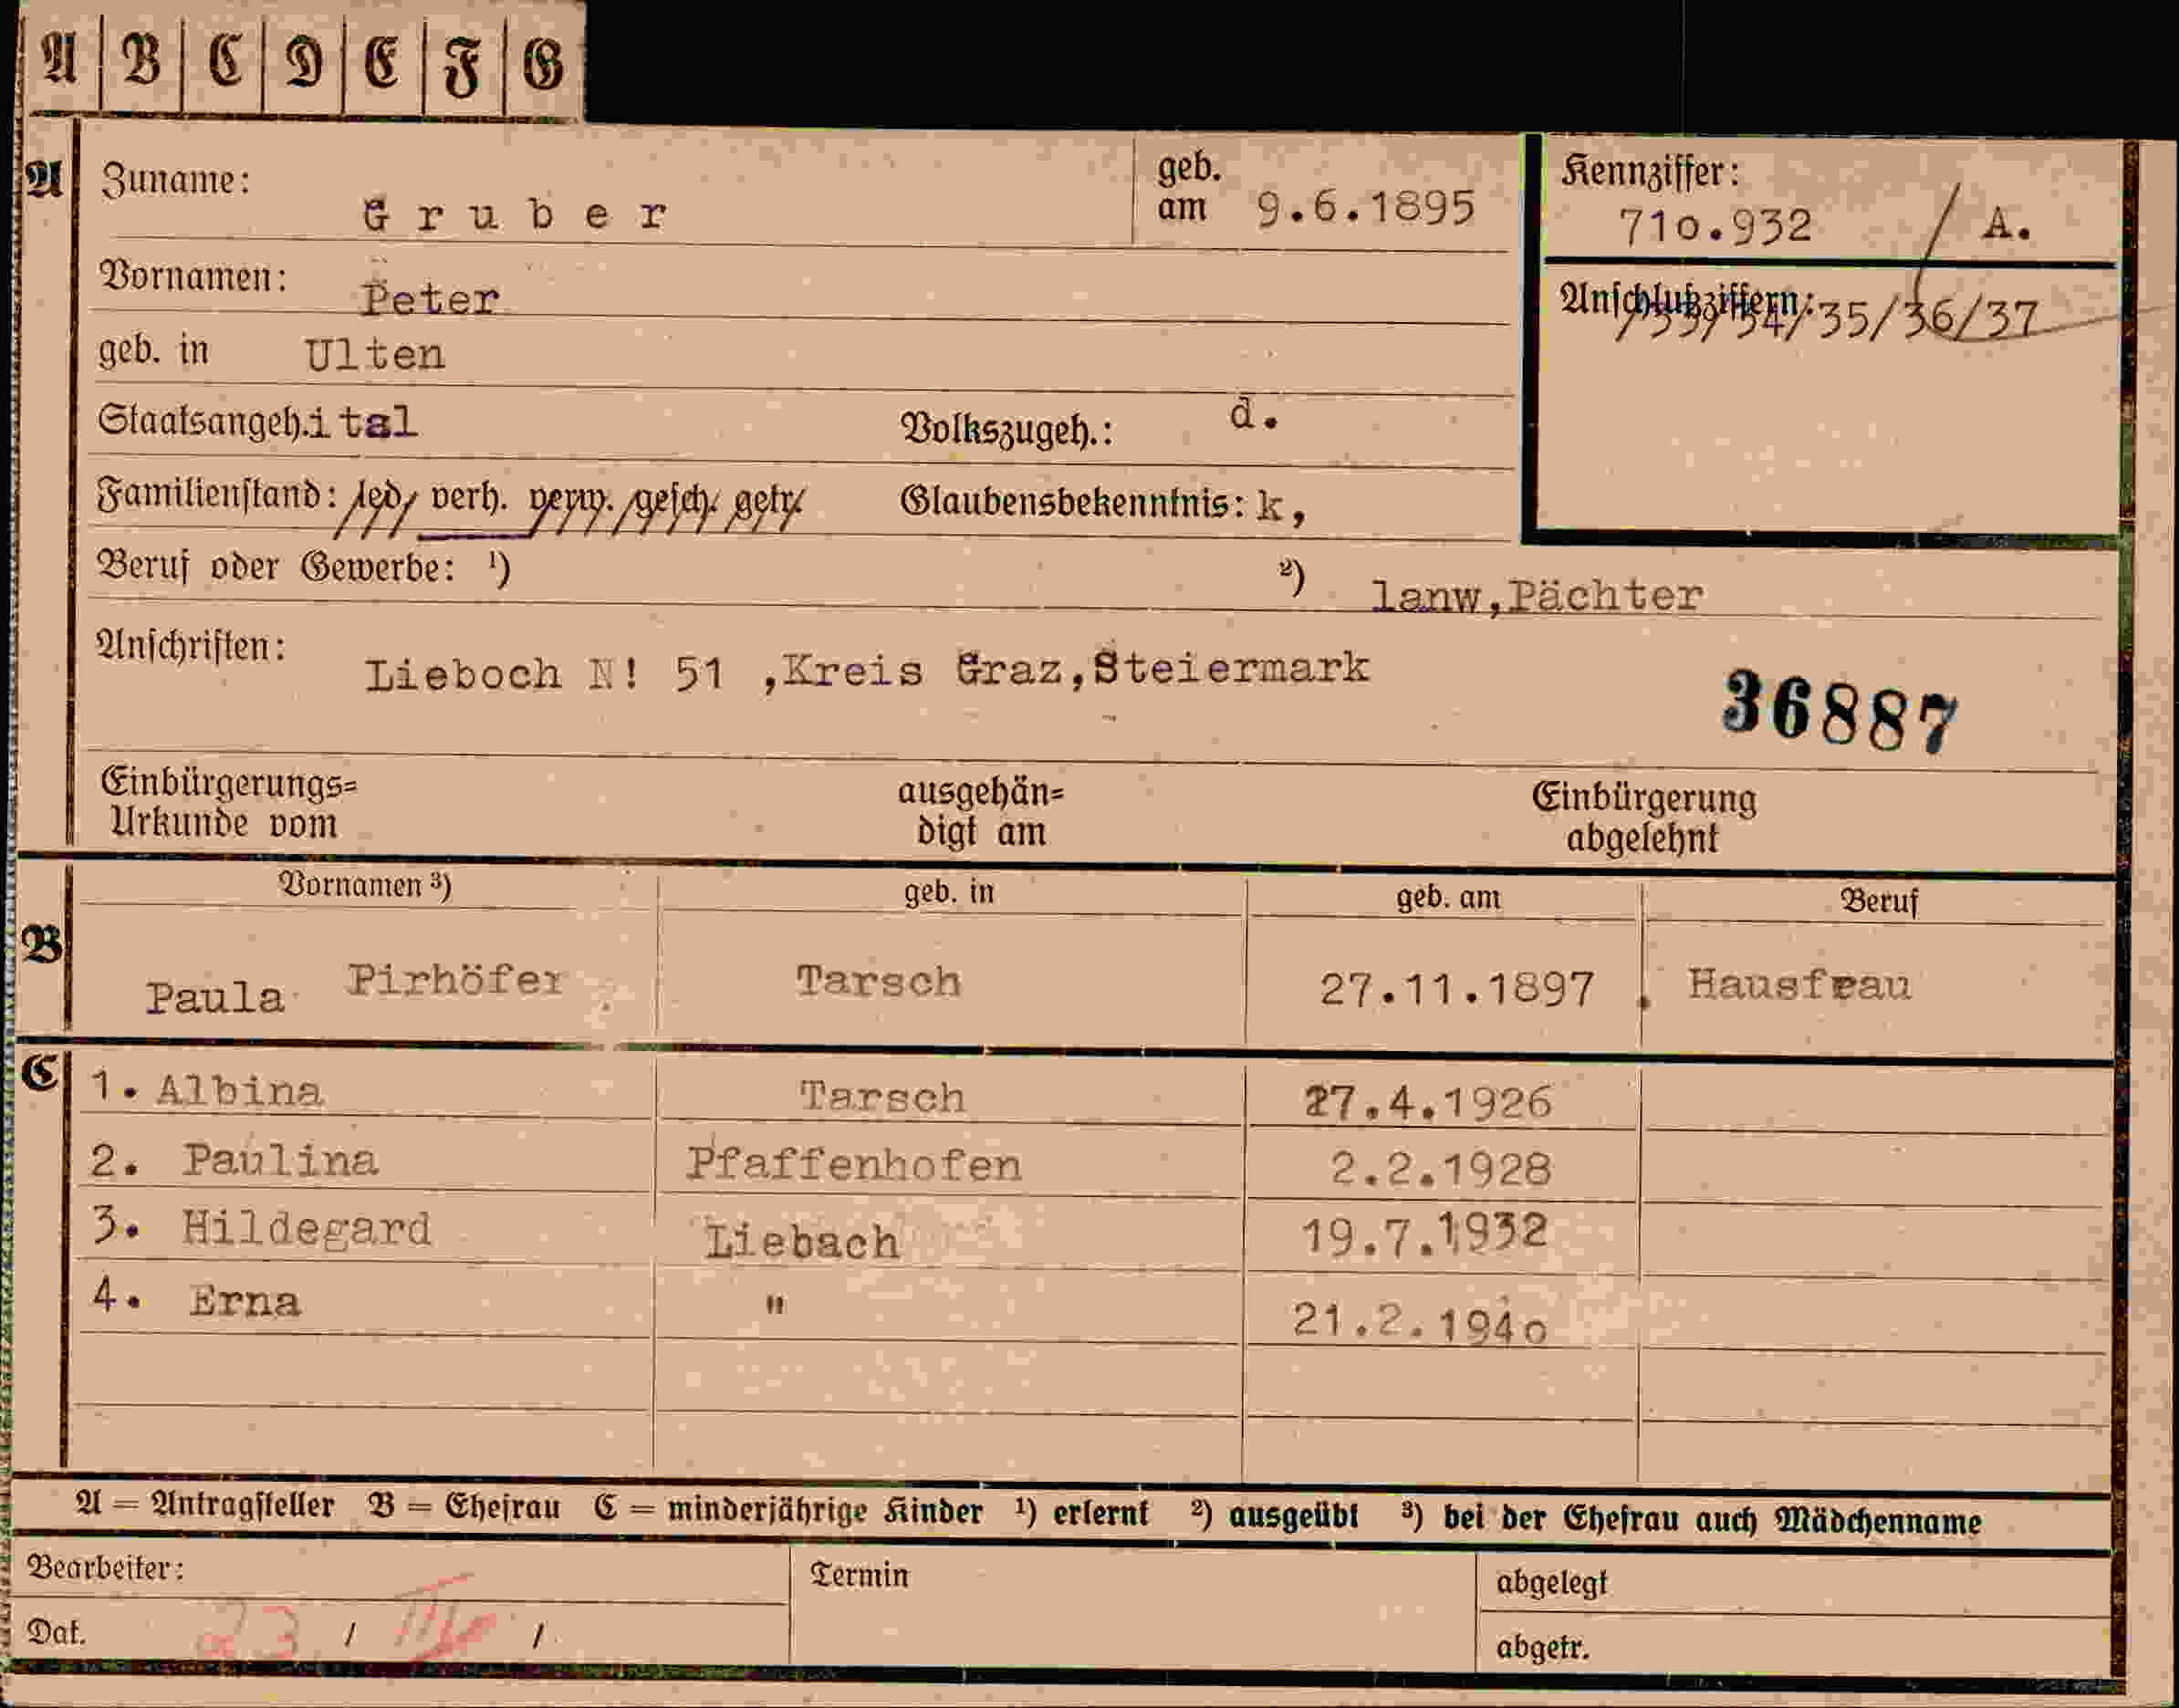 A B C D E F G
A Zuname: Gruber geb. am 9.6.1895 Kennziffer: 710.932 / A.
Vornamen: Peter Anschlußziffern: /33/34/35/36/37
geb. in Ulten
Staatsangeh. ital Volkszugeh.: d.
Familienstand: led. verh. verw. gesch. getr. Glaubensbekenntnis: k,
Beruf oder Gewerbe: ¹) ²) lanw,Pächter
Anschriften: Lieboch N! 51 ,Kreis Graz,Steiermark
36887
Einbürgerungs= Urkunde vom ausgehän= digt am Einbürgerung abgelehnt
Vornamen ³) geb. in geb. am Beruf
B Paula Pirhöfer Tarsch 27.11.1897 Hausfrau
C 1. Albina Tarsch 27.4.1926
2. Paulina Pfaffenhofen 2.2.1928
3. Hildegard Liebach 19.7.1932
4. Erna " 21.2.1940
A = Antragsteller B = Ehefrau C = minderjährige Kinder ¹) erlernt ²) ausgeübt ³) bei der Ehefrau auch Mädchenname
Bearbeiter: Termin abgelegt
Dat. 23 / / abgetr.